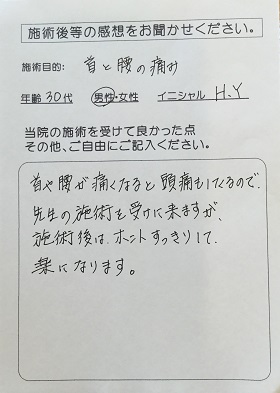 施術後等の感想をお聞かせください。
施術目的: 首と腰の痛み
年齢30代 男性・女性 イニシャル H.Y
当院の施術を受けて良かった点
その他、ご自由にご記入ください。
首や腰が痛くなると頭痛もしてくるので、
先生の施術を受けに来ますが、
施術後は、ホントすっきりして、
楽になります。